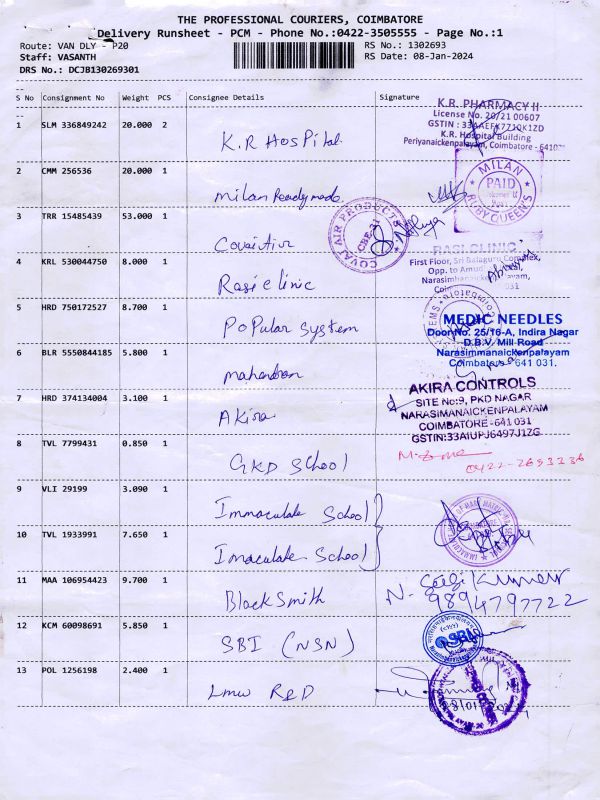 THE PROFESSIONAL COURIERS, COIMBATORE
Delivery Runsheet - PCM - Phone No.:0422-3505555 - Page No.:1
Route: VAN DLY - P20
RS No.: 1302693
Staff: VASANTH
RS Date: 08-Jan-2024
DRS No.: DCJB130269301
S No Consignment No Weight PCS Consignee Details Signature
1 SLM 336849242 20.000 2 K.R Hospital
K.R. PHARMACY II
License No. 20/21 00607
GSTIN : 33AAEFK7710K1ZD
K.R. Hospital Building
Periyanaickenpalayam, Coimbatore - 641
2 CMM 256536 20.000 1 Milan Readymade
MILAN
PAID
RUBY QUEEN'S
3 TRR 15485439 53.000 1 Covai Air
COVAI AIR PRODUCTS
CBE-31
4 KRL 530044750 8.000 1 Rasi clinic
RASI CLINIC
First Floor, Sri Balaguru Complex,
Opp. to
031
5 HRD 750172527 8.700 1 Popular System
6 BLR 5550844185 5.800 1 mahendran
MEDIC NEEDLES
Door No. 25/16-A, Indira Nagar
D.B.V. Mill Road
Narasimmanaickenpalayam
Coimbatore - 641 031.
7 HRD 374134004 3.100 1 Akira
AKIRA CONTROLS
SITE No:9, PKD NAGAR
NARASIMANAICKENPALAYAM
COIMBATORE - 641 031
GSTIN:33AIUPJ6497J1ZG
8 TVL 7799431 0.850 1 GKD School
0422-2693236
9 VLI 29199 3.090 1 Immaculate School
10 TVL 1933991 7.650 1 Imaculate School
11 MAA 106954423 9.700 1 Black Smith
9894797722
12 KCM 60098691 5.850 1 SBI (NSN)
SBI
13 POL 1256198 2.400 1 Lmw R&D